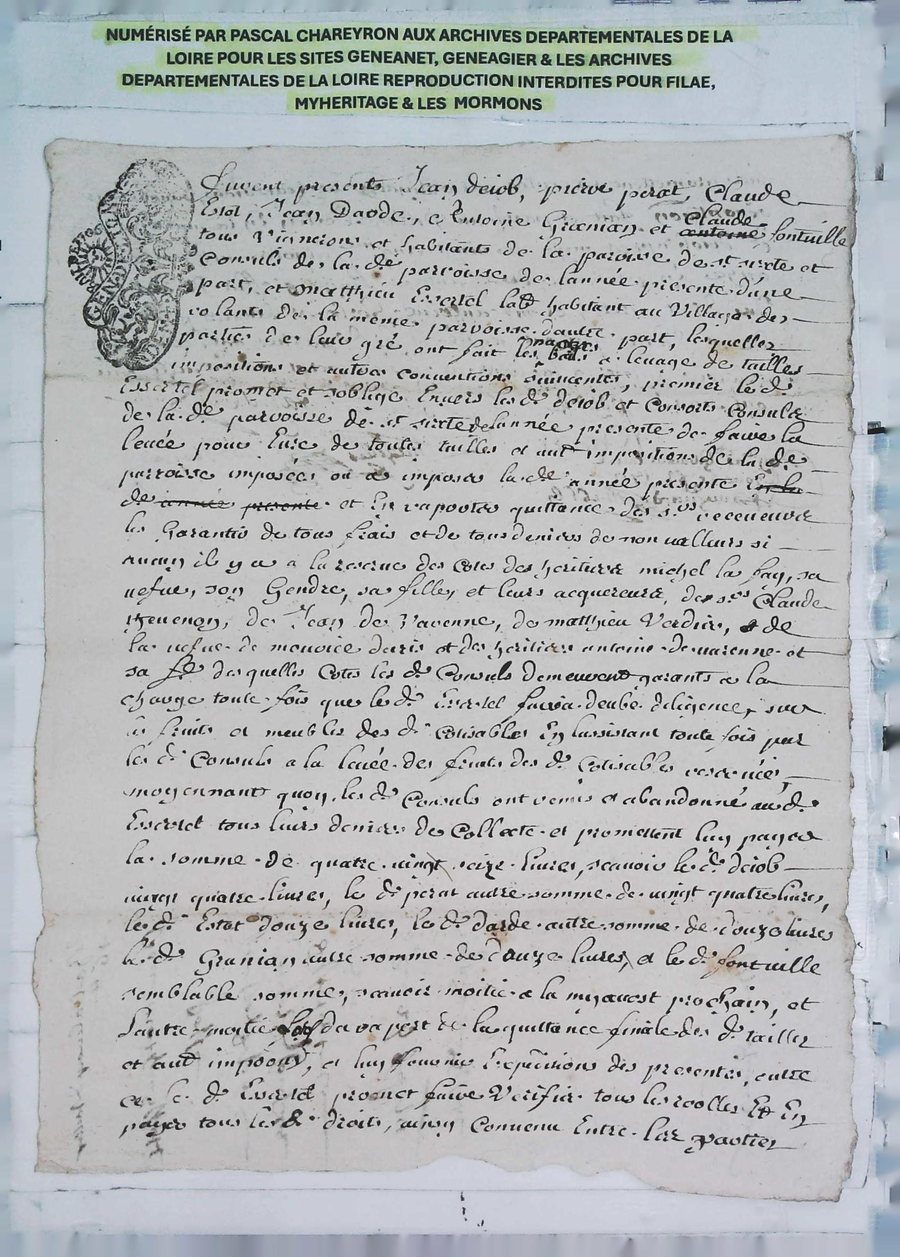 NUMÉRISÉ PAR PASCAL CHAREYRON AUX ARCHIVES DEPARTEMENTALES DE LA
LOIRE POUR LES SITES GENEANET, GENEAGIER & LES ARCHIVES
DEPARTEMENTALES DE LA LOIRE REPRODUCTION INTERDITES POUR FILAE,
MYHERITAGE & LES MORMONS
furent presents Jean deiob, pierre perat, Claude
Estot, Jean Darde, Antoine Granian et Claude fontuille
tous vignerons et habitants de la paroisse de st sixte et
Consuls de la de parroisse de lannée presente d'une
part, et matthieu Essertel habitant au village des
volants de la meme parvoisse dautre part, lesquelles
parties de leur gré ont fait les a leuage de tailles
impositions et autres conventions suiuentes, premier le dt
Essertel promet et soblige Enuers les dts deiob et Consorts Consuls
de la de parvoisse de st sixte de lannée presente de faire la
leuée pour Eux de toutes tailles et autt impositions de la de
parroisse imposées ou a imposer la de année presente
et En raporter quittance des srs receueurs
les Garantir de tous frais et de tous deniers de non ualleurs si
aucun il y a a la reserue des Cotes des heritiers michel la fay, sa
uefue, son Gendre, sa fille, et leurs acquereurs, des srs Claude
theuenon, de Jean de Varenne, de matthieu Verdier, de
la uefue de et des heritiers antoine de uarenne et
sa fe desquelles Cotes les dts Consuls demeurent garants a la
charge toute fois que le dt Essertel faira deube diligence, sur
les fruits et meubles des dts Cotisables En lassistant toute fois par
les dts Consuls a la leuée des fruits des dts Cotisables reseruées,
moyennant quoy les dts Consuls ont remis et abandonné au dt
Essertel tous leurs deniers de Collecte et promettent luy payer
la somme de quatre uingt seize liures, scauoir le dt deiob
uingt quatre liures, le dt perat autre somme de uingt quatre liures,
le dt Estot douze liures, le dt darde autre somme de douze liures
le dt Granian autre somme de douze liures, et le dt fontuille
semblable somme, scauoir moitié a la myaoust prochain, et
l'autre moitié du raport de la quittance finale des dts tailles
et autt imposons, et luy fournir Expeditions des presentes, outre
ce le dt Essertel promet faire Verifier tous les roolles Et En
payer tous les dts droits, ainsy Conuenu Entre les parties